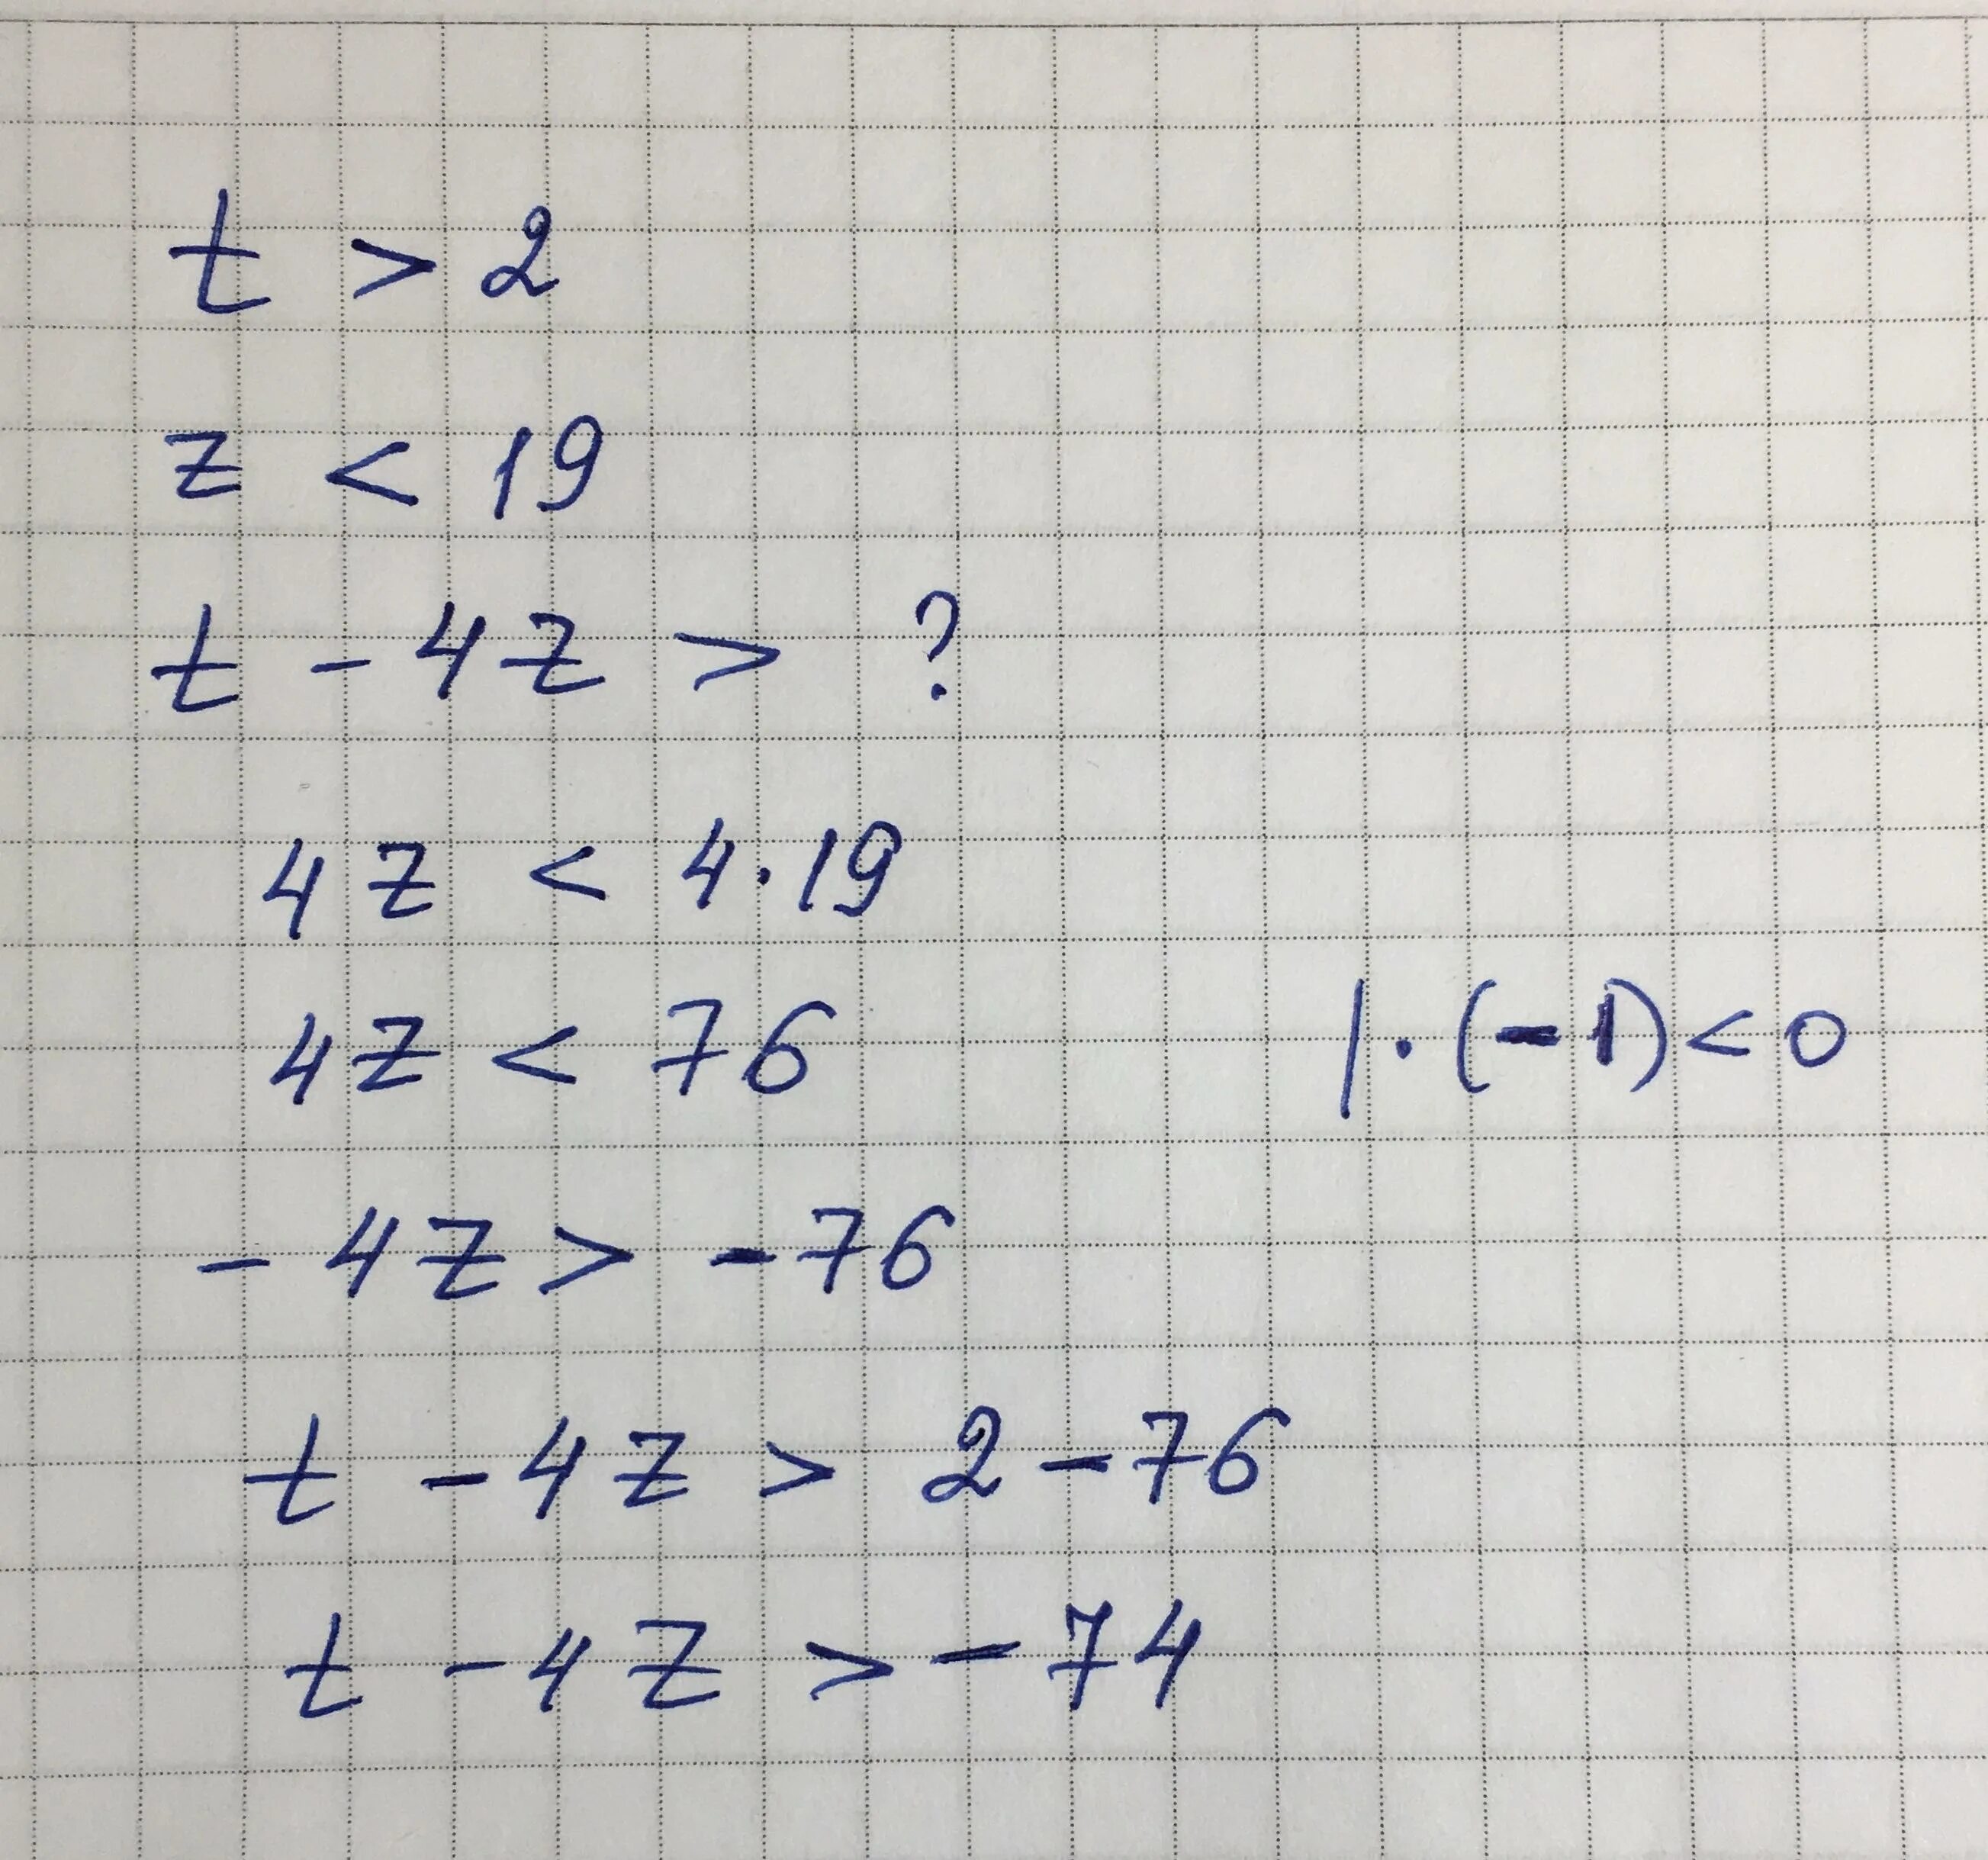 t > 2
z < 19
t - 4z > ?
4z < 4·19
4z < 76 |·(-1)<0
-4z > -76
t - 4z > 2-76
t - 4z > -74